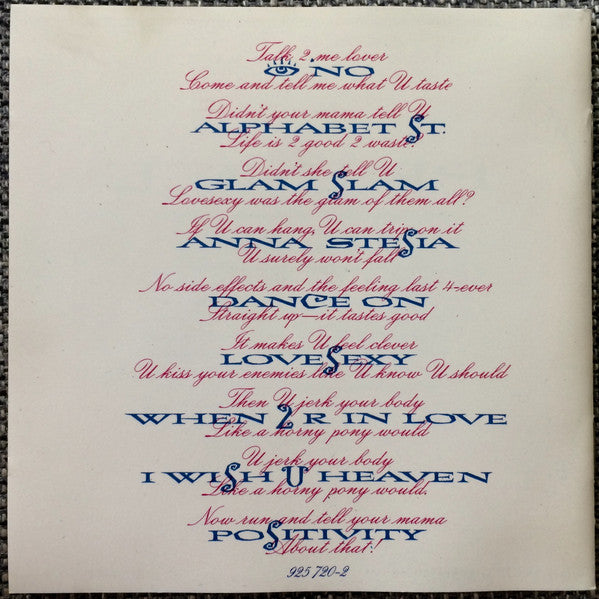 Talk 2 me lover
👁 NO
Come and tell me what U taste
Didn't your mama tell U
ALPHABET ST.
Life is 2 good 2 waste!
Didn't she tell U
GLAM SLAM
Lovesexy was the glam of them all?
If U can hang, U can trip on it
ANNA STESIA
U surely won't fall
No side effects and the feeling last 4-ever
DANCE ON
Straight up—it tastes good
It makes U feel clever
LOVESEXY
U kiss your enemies like U know U should
Then U jerk your body
WHEN 2 R IN LOVE
Like a horny pony would
U jerk your body
I WISH U HEAVEN
Like a horny pony would.
Now run and tell your mama
POSITIVITY
About that!
925 720-2